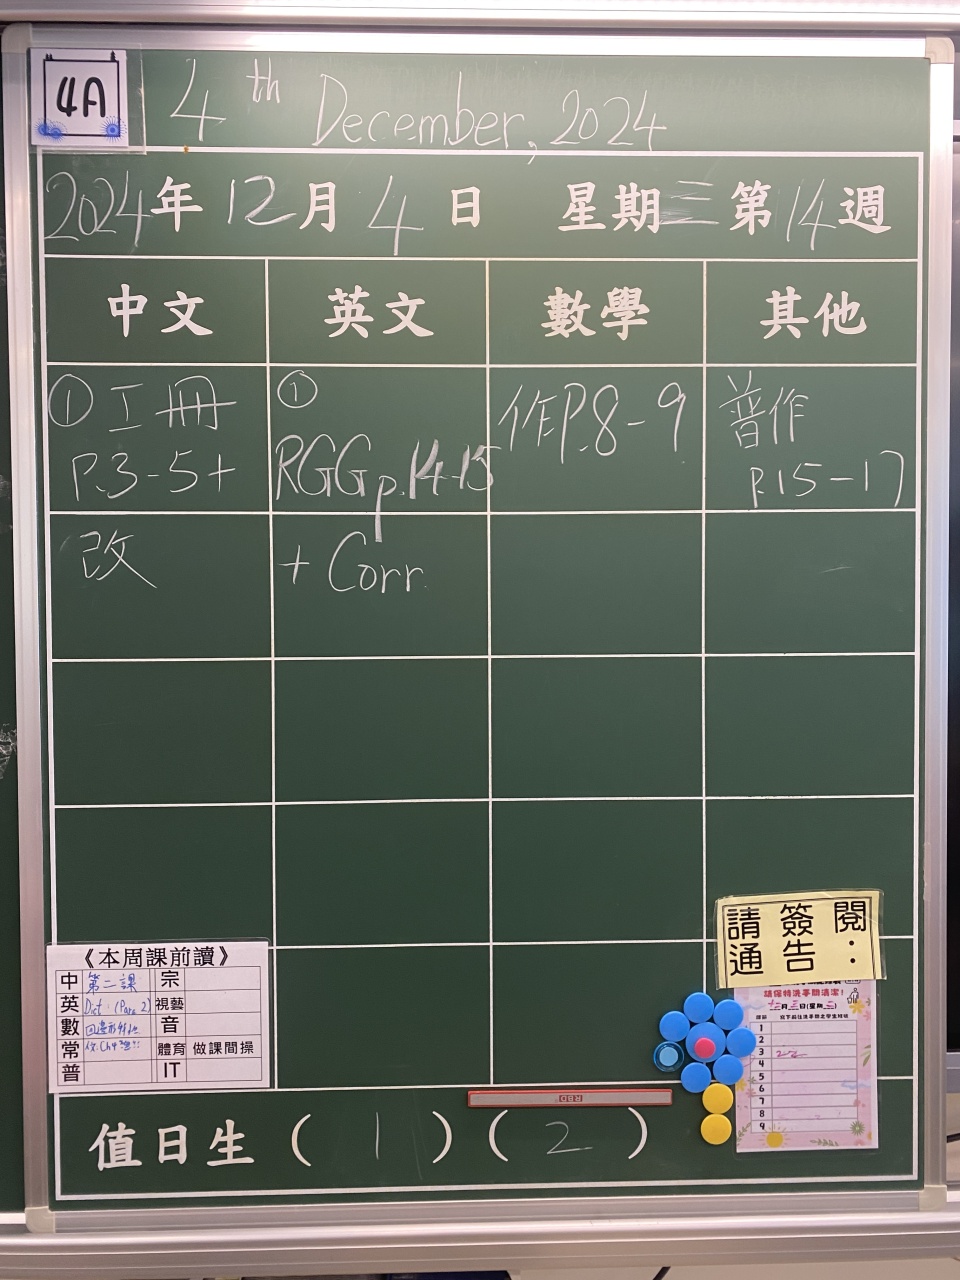 4A
4th December, 2024
2024年12月4日 星期三 第14週
中文 英文 數學 其他
① 工冊 P.3-5+ 改
① RGG p.14-15 + Corr.
作P.8-9
普作 P.15-17
請簽閱
通告：
請保持洗手間清潔！
十二月三日(星期二)
1
2
3
4
5
6
7
8
9
《本周課前讀》
中 第二課 宗
英 Dict. (Para. 2) 視藝
數 音
常 體育 做課間操
普 IT
RBD
值日生 ( 1 ) ( 2 )